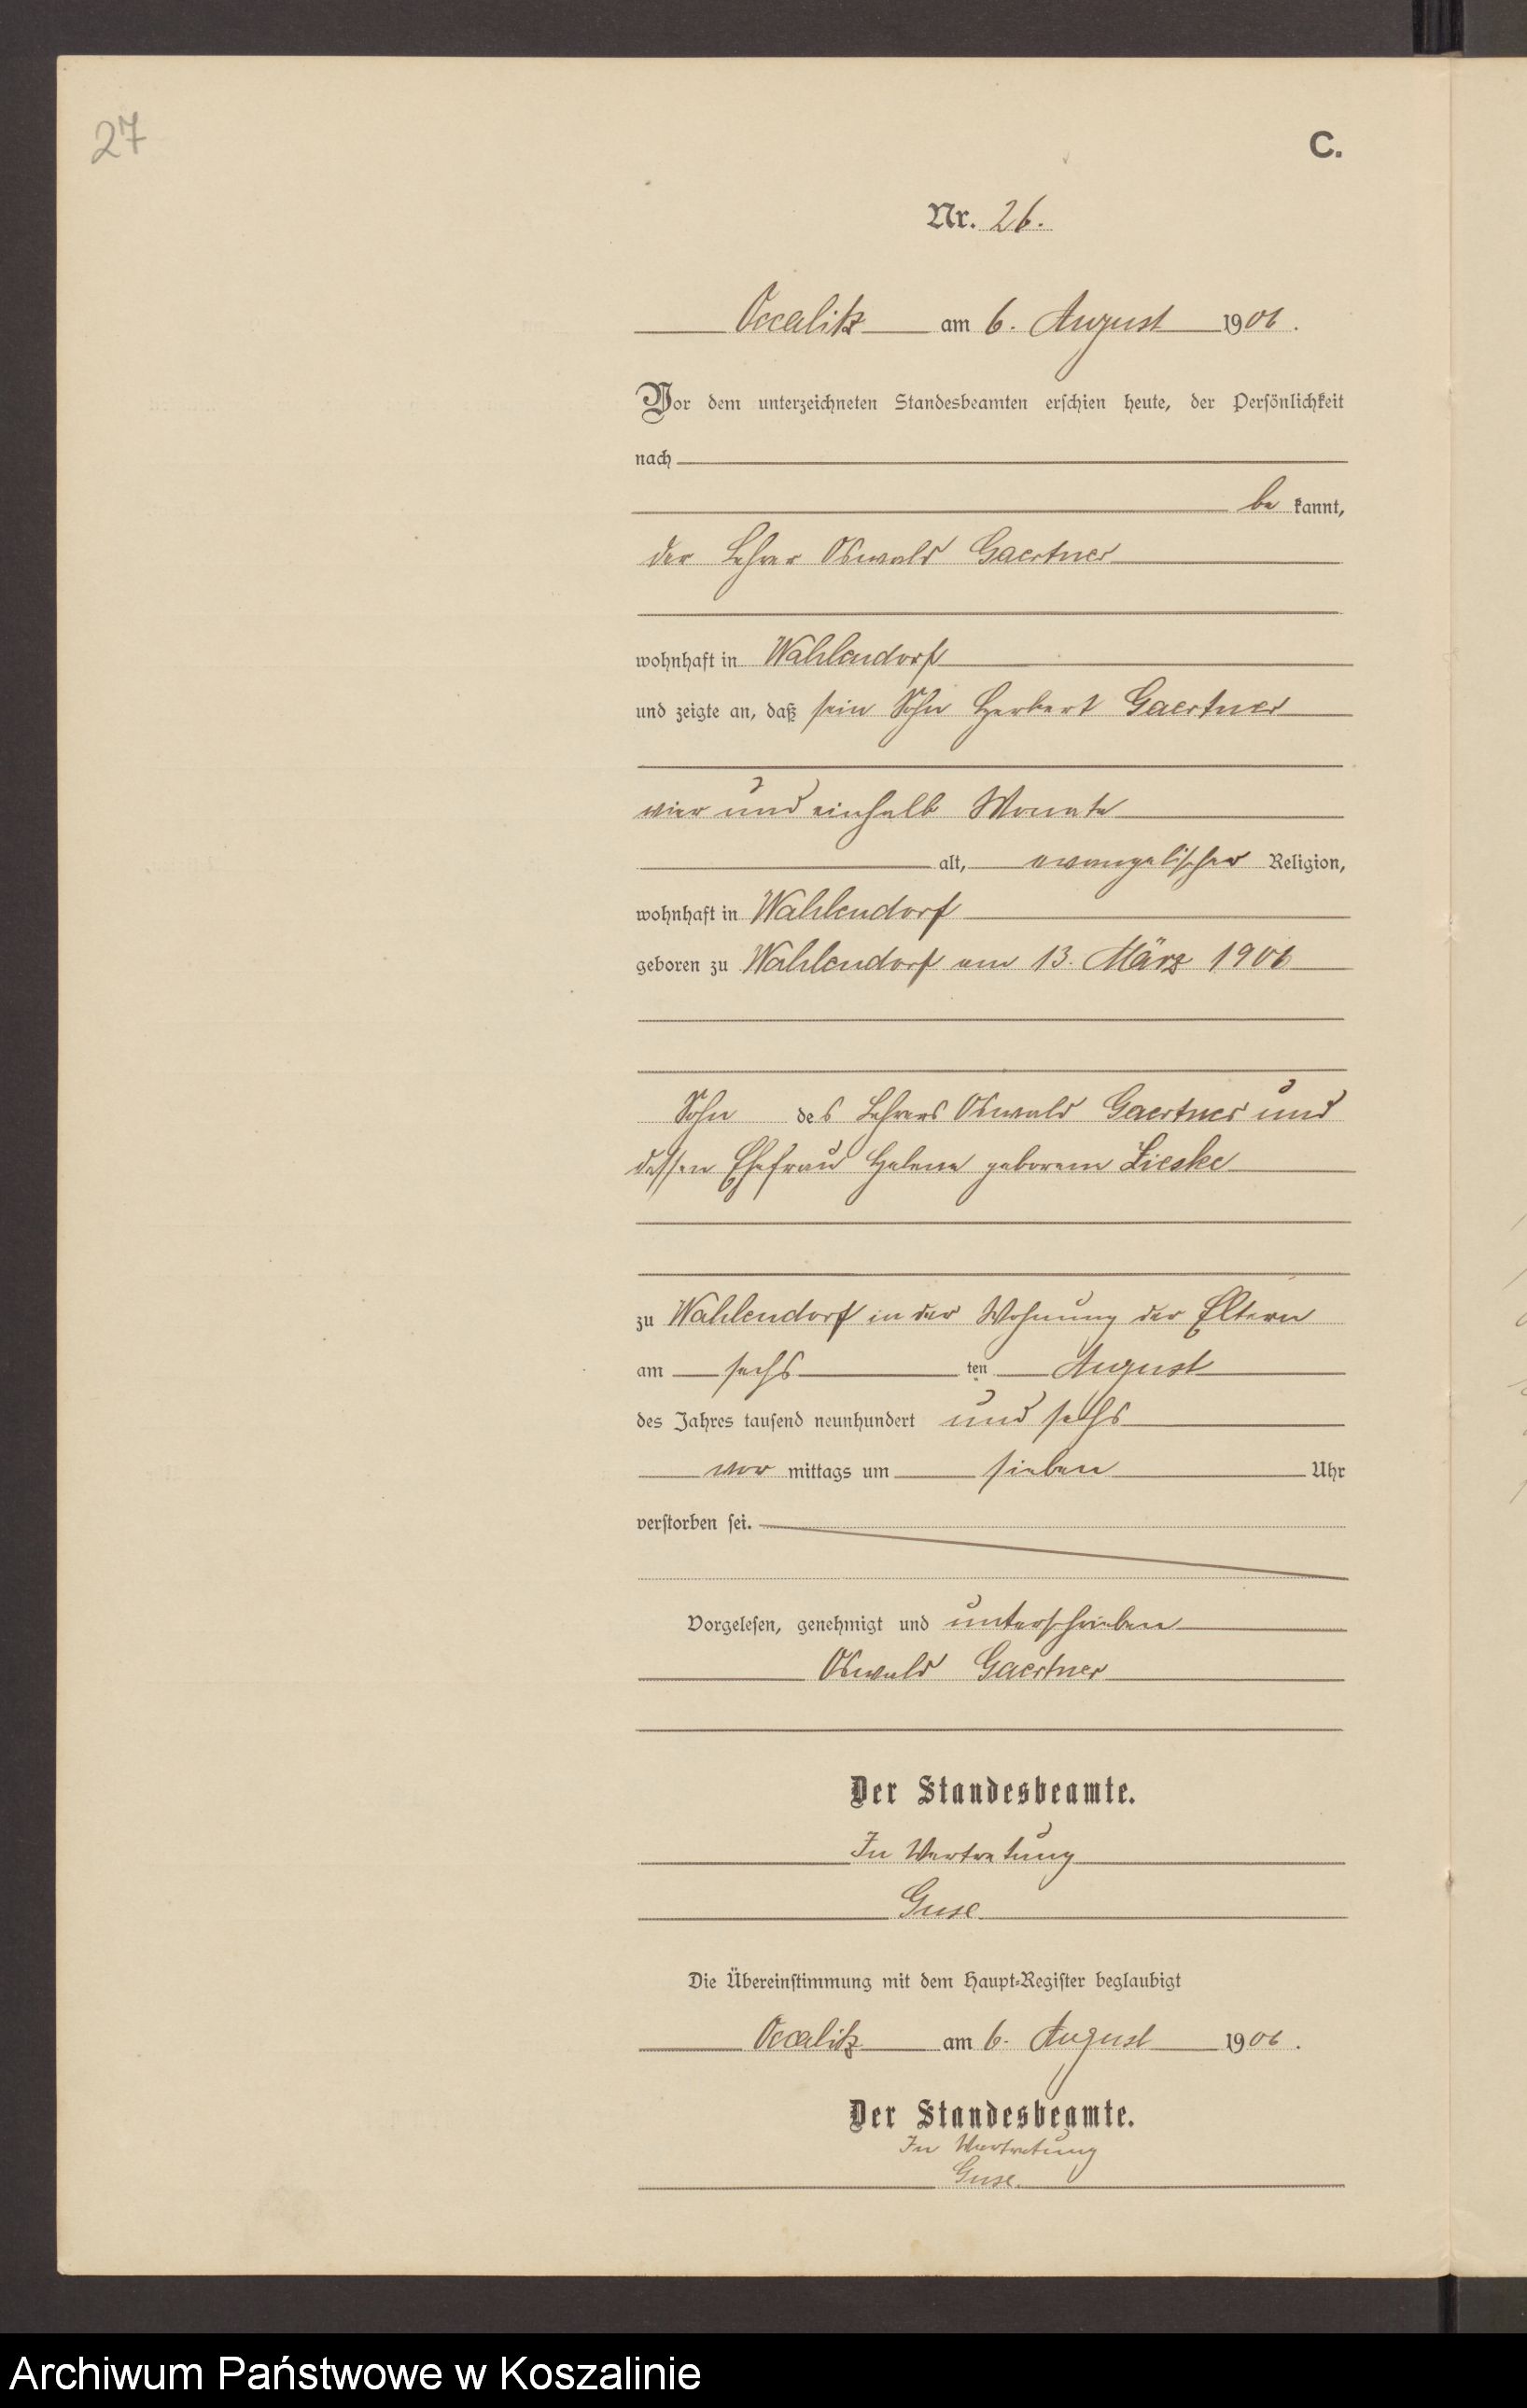 27
C.
Nr. 26.
Occalitz am 6. August 1906.
Vor dem unterzeichneten Standesbeamten erschien heute, der Persönlichkeit
nach
be kannt,
der Lehrer Oswald Gaertner
wohnhaft in Wahlendorf
und zeigte an, daß sein Sohn Herbert Gaertner
vier und einhalb Monate
alt, evangelischer Religion,
wohnhaft in Wahlendorf
geboren zu Wahlendorf am 13. März 1906
Sohn des Lehrers Oswald Gaertner und
dessen Ehefrau Helene geborenen Lieske
zu Wahlendorf in der Wohnung der Eltern
am sechs ten August
des Jahres tausend neunhundert und sechs
vor mittags um sieben Uhr
verstorben sei.
Vorgelesen, genehmigt und unterschrieben
Oswald Gaertner
Der Standesbeamte.
In Vertretung
Guse
Die Übereinstimmung mit dem Haupt-Register beglaubigt
Occalitz am 6. August 1906.
Der Standesbeamte.
In Vertretung
Guse.
Archiwum Państwowe w Koszalinie